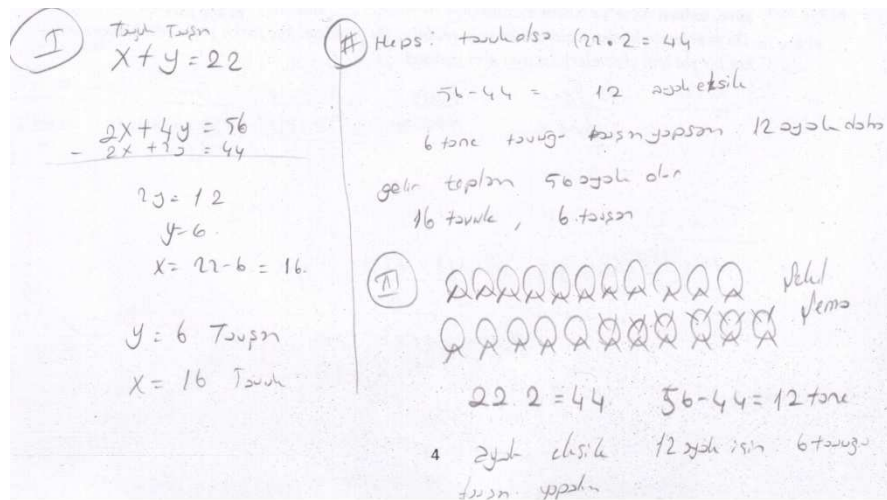 I
Tavuk Tavşan
x + y = 22
2x + 4y = 56
- 2x + 2y = 44
2y = 12
y = 6
x = 22 - 6 = 16.
y = 6 Tavşan
x = 16 Tavuk
II Hepsi tavuk olsa (22.2 = 44
56-44 = 12 ayak eksik
6 tane tavuğu tavşan yapsam 12 ayak daha
gelir toplam 56 ayak olur
16 tavuk, 6 tavşan
III
Şekil
Şema
22 2 = 44 56-44 = 12 tane
ayak eksik 12 ayak için 6 tavuğu
tavşan yapalım
4